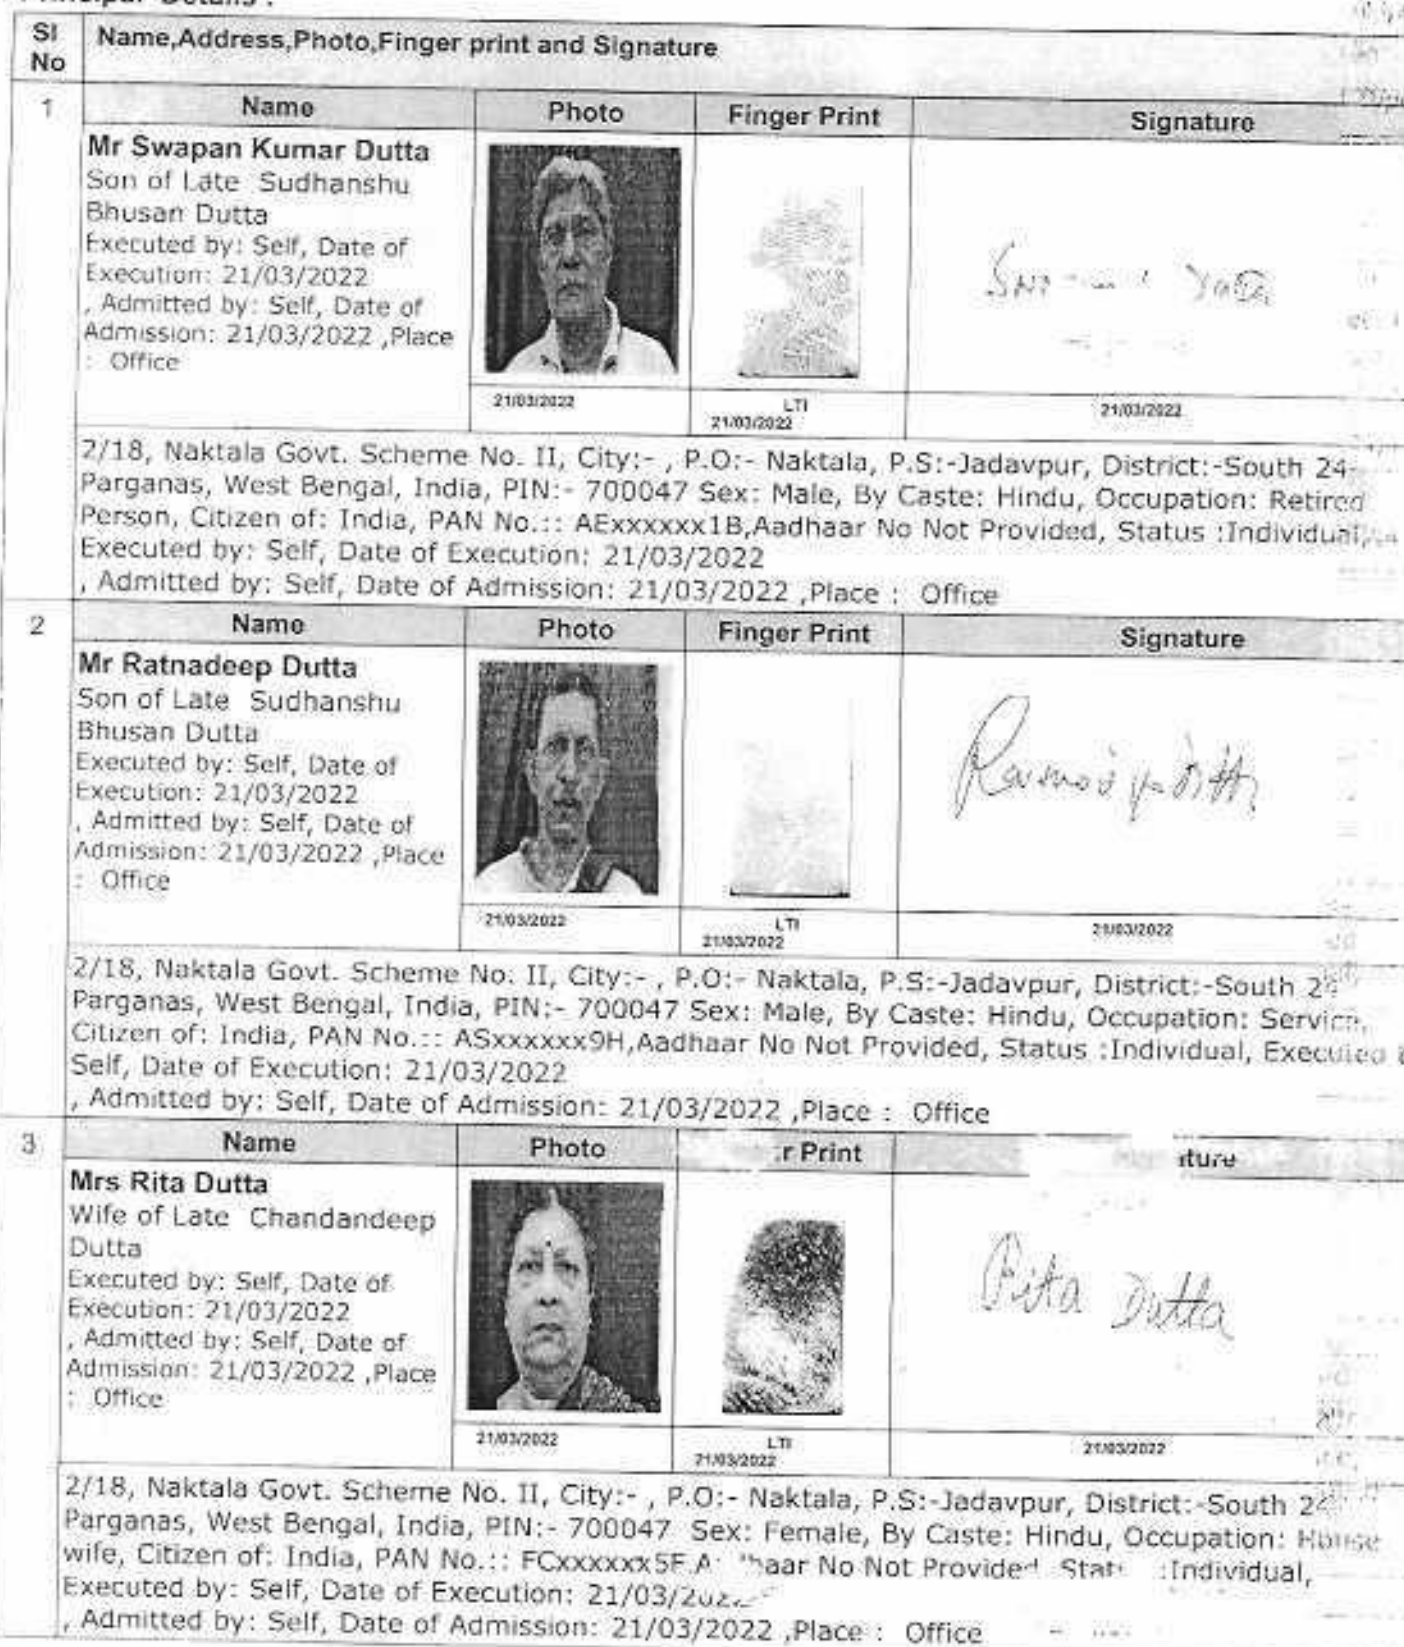 Details :
Sl No
Name,Address,Photo,Finger print and Signature
1
Name
Photo
Finger Print
Signature
Mr Swapan Kumar Dutta
Son of Late Sudhanshu
Bhusan Dutta
Executed by: Self, Date of
Execution: 21/03/2022
, Admitted by: Self, Date of
Admission: 21/03/2022 ,Place
: Office
21/03/2022
LTI
21/03/2022
21/03/2022
2/18, Naktala Govt. Scheme No. II, City:- , P.O:- Naktala, P.S:-Jadavpur, District:-South 24-
Parganas, West Bengal, India, PIN:- 700047 Sex: Male, By Caste: Hindu, Occupation: Retired
Person, Citizen of: India, PAN No.:: AExxxxxx1B,Aadhaar No Not Provided, Status :Individual,
Executed by: Self, Date of Execution: 21/03/2022
, Admitted by: Self, Date of Admission: 21/03/2022 ,Place : Office
2
Name
Photo
Finger Print
Signature
Mr Ratnadeep Dutta
Son of Late Sudhanshu
Bhusan Dutta
Executed by: Self, Date of
Execution: 21/03/2022
, Admitted by: Self, Date of
Admission: 21/03/2022 ,Place
: Office
21/03/2022
LTI
21/03/2022
21/03/2022
2/18, Naktala Govt. Scheme No. II, City:- , P.O:- Naktala, P.S:-Jadavpur, District:-South 24
Parganas, West Bengal, India, PIN:- 700047 Sex: Male, By Caste: Hindu, Occupation: Service,
Citizen of: India, PAN No.:: ASxxxxxx9H,Aadhaar No Not Provided, Status :Individual, Executed
Self, Date of Execution: 21/03/2022
, Admitted by: Self, Date of Admission: 21/03/2022 ,Place : Office
3
Name
Photo
r Print
ture
Mrs Rita Dutta
Wife of Late Chandandeep
Dutta
Executed by: Self, Date of
Execution: 21/03/2022
, Admitted by: Self, Date of
Admission: 21/03/2022 ,Place
: Office
Rita Dutta
21/03/2022
LTI
21/03/2022
21/03/2022
2/18, Naktala Govt. Scheme No. II, City:- , P.O:- Naktala, P.S:-Jadavpur, District:-South 24
Parganas, West Bengal, India, PIN:- 700047 Sex: Female, By Caste: Hindu, Occupation: House
wife, Citizen of: India, PAN No.:: FCxxxxxx5F,A haar No Not Provided Stat :Individual,
Executed by: Self, Date of Execution: 21/03/202
, Admitted by: Self, Date of Admission: 21/03/2022 ,Place : Office